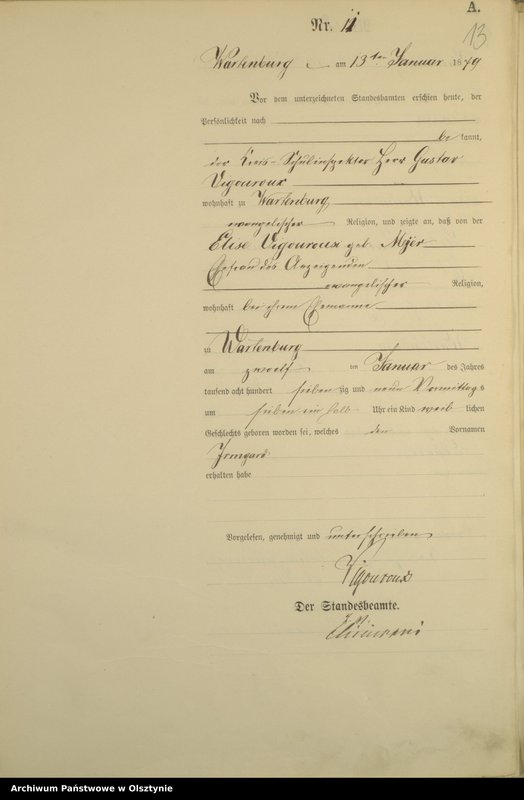 A.
13
Nr. 11
Wartenburg am 13ten Januar 1879
Vor dem unterzeichneten Standesbeamten erschien heute, der
Persönlichkeit nach
be kannt,
der Kreis-Schulinspektor Herr Gustav
Vigouroux
wohnhaft zu Wartenburg
evangelischer Religion, und zeigte an, daß von der
Elise Vigouroux geb. Myer
Ehefrau des Anzeigenden
evangelischer Religion,
wohnhaft bei ihrem Ehemanne
zu Wartenburg
am zwoelf ten Januar des Jahres
tausend acht hundert sieben zig und neun Vormittag s
um sieben ein halb Uhr ein Kind weib lichen
Geschlechts geboren worden sei, welches den Vornamen
Irmgard
erhalten habe
Vorgelesen, genehmigt und unterschrieben
Vigouroux
Der Standesbeamte.
Archiwum Państwowe w Olsztynie